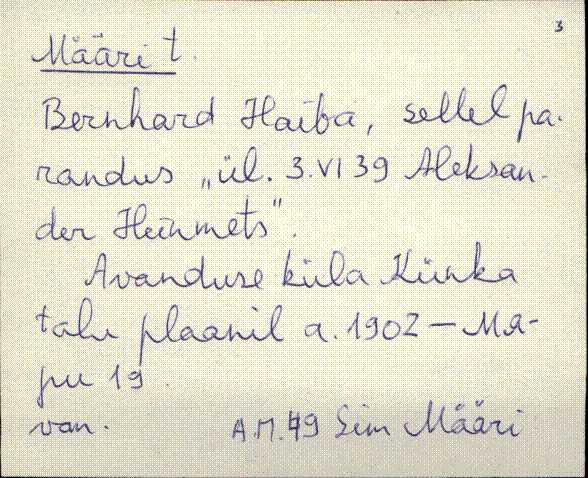 3
Määri t.
Bernhard Haiba, sellel pa-
randus „ül. 3.VI 39 Aleksan-
der Heinmets".
Avanduse küla Künka
talu plaanil a. 1902 — Mä-
pu 19.
van. A.M. 49 Sim Määri